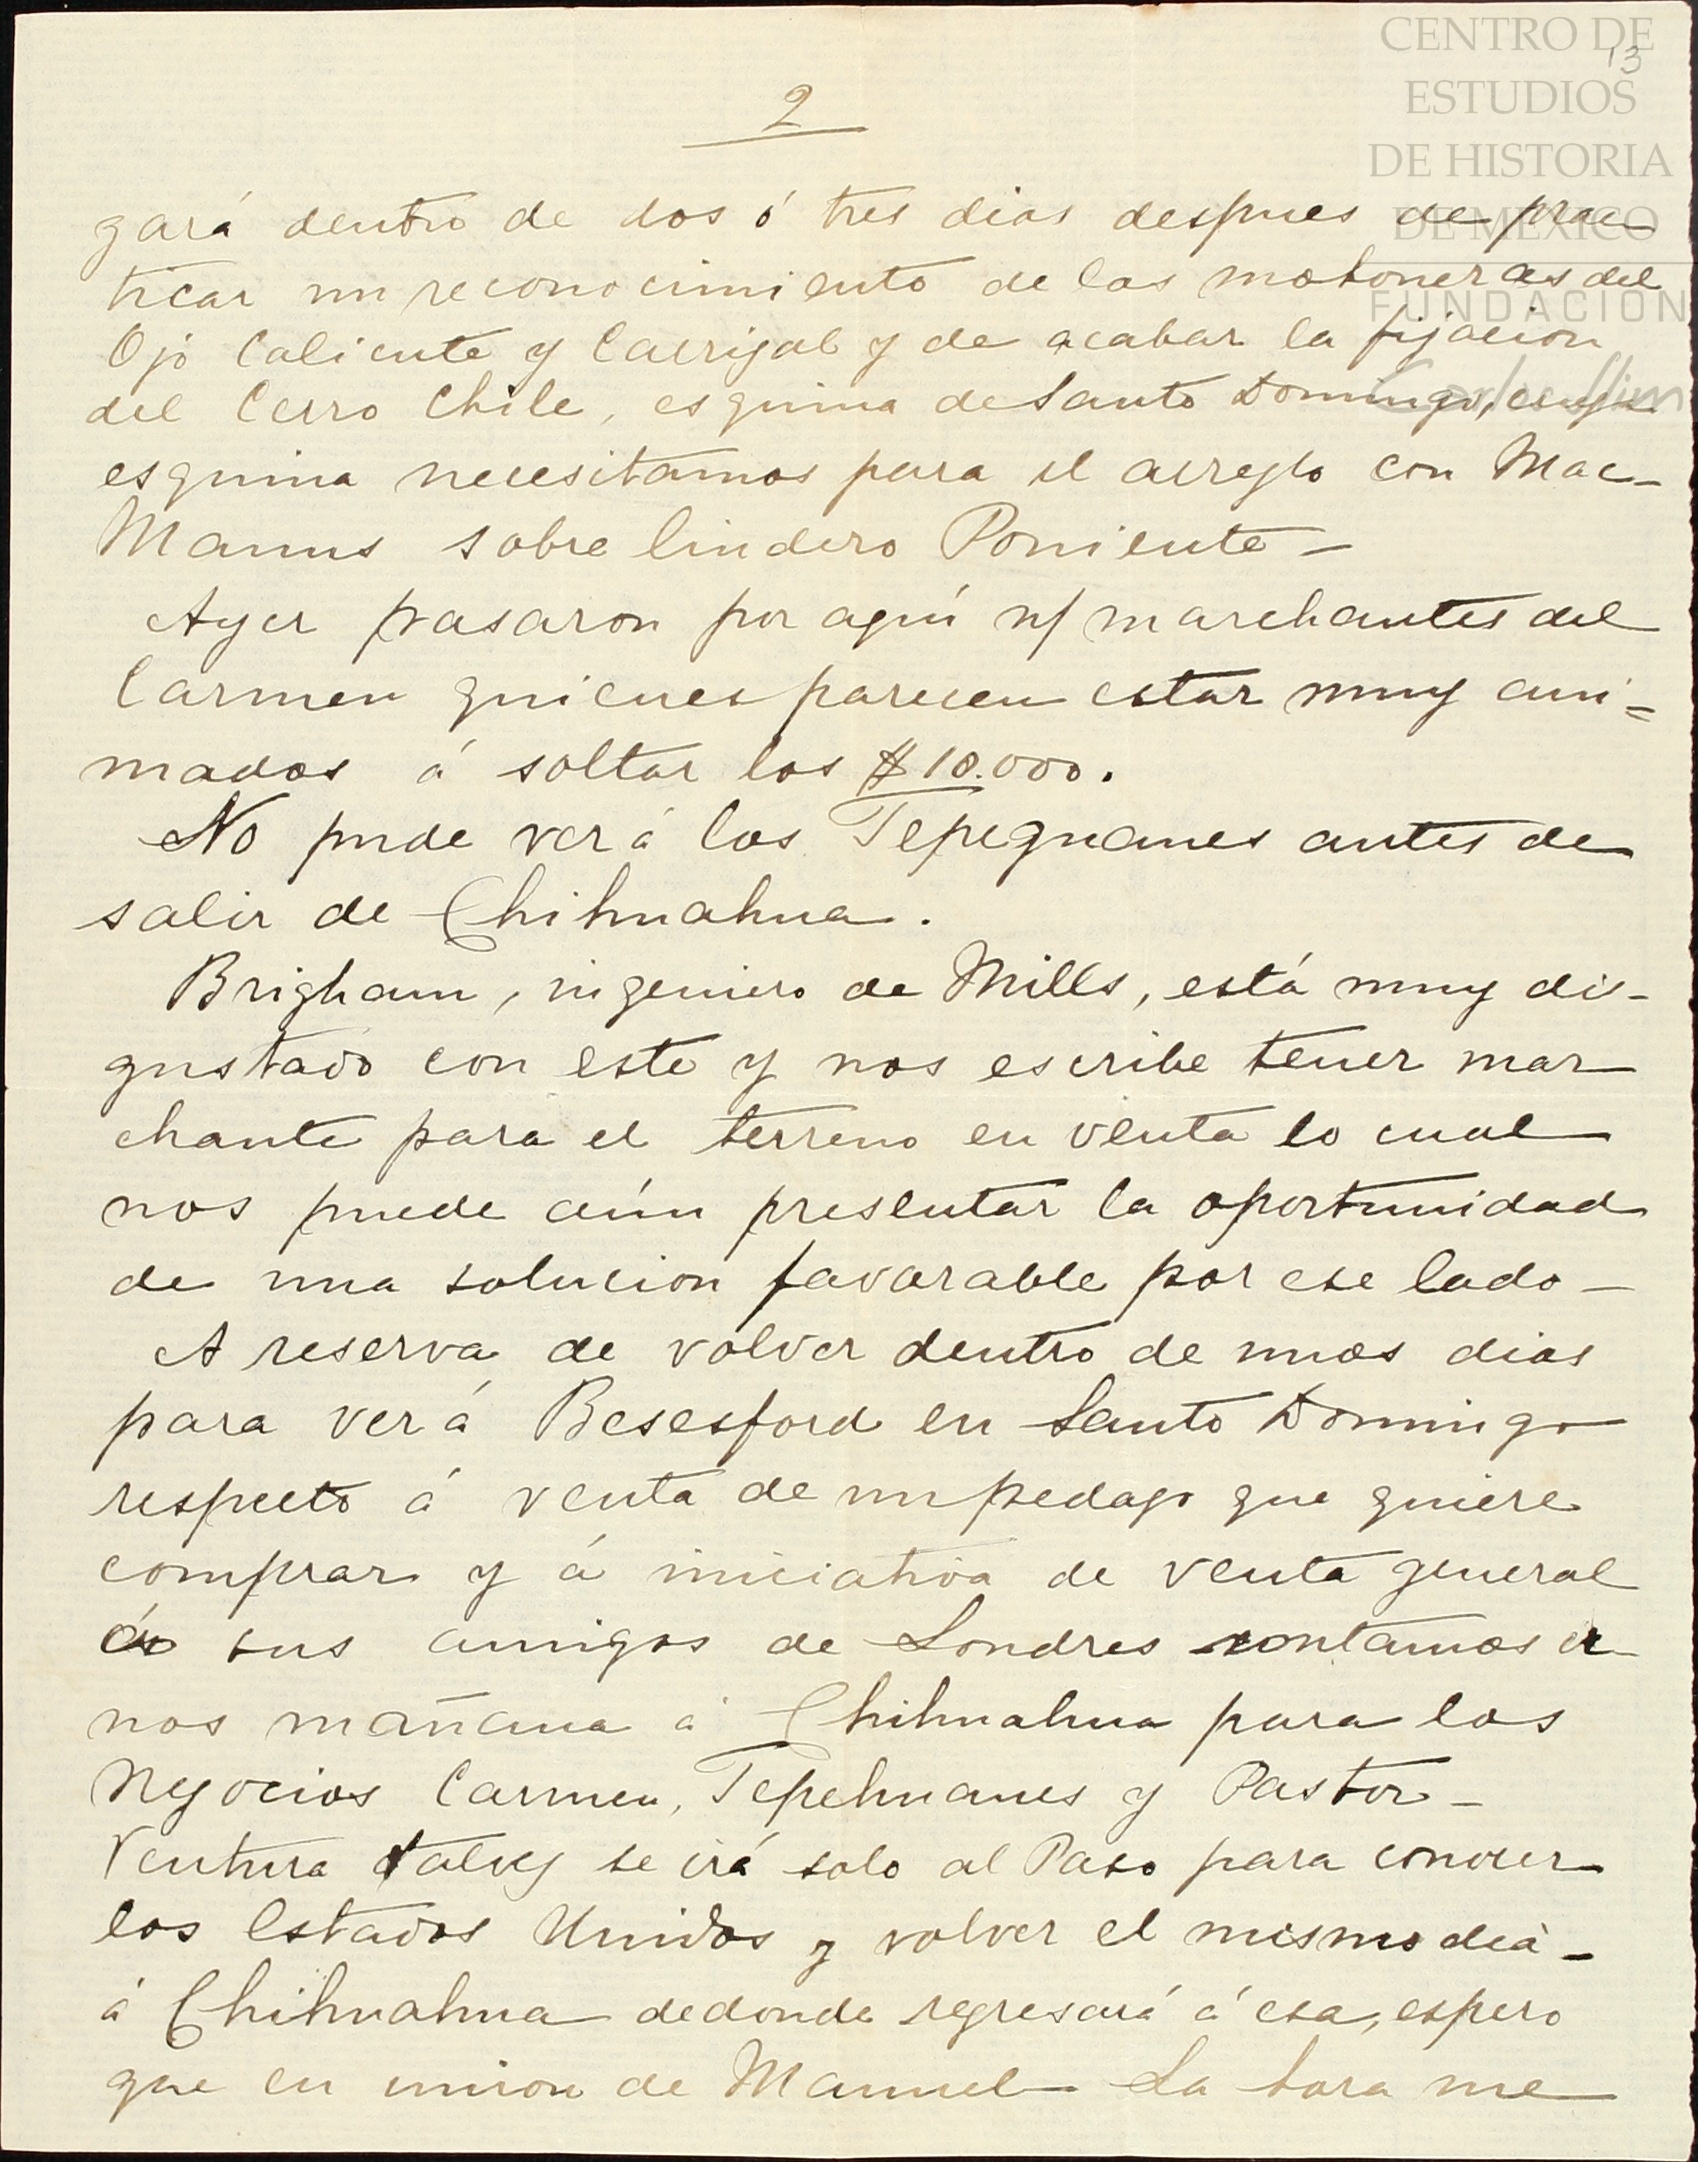 CENTRO DE
ESTUDIOS
DE HISTORIA
DE MÉXICO
FUNDACIÓN
Carlos Slim
13
2
gará dentro de dos ó tres dias despues de prac
ticar un reconocimiento de las mohoneras del
Ojo Caliente y Carrizal y de acabar la fijacion
del Cerro Chile, esquina de Santo Domingo, cuya
esquina necesitamos para el arreglo con Mac-
Manus sobre lindero Poniente -
Ayer pasaron por aquí n/ marchantes del
Carmen quienes parecen estar muy ani=
mados á soltar los $10.000.
No pude ver á los Tepeguanes antes de
salir de Chihuahua.
Brigham, ingeniero de Mills, está muy dis-
gustado con este y nos escribe tener mar
chante para el terreno en venta lo cual
nos puede aún presentar la oportunidad
de una solucion favorable por ese lado -
A reserva de volver dentro de unos dias
para ver á Besesford en Santo Domingo
respecto á venta de un pedazo que quiere
comprar y á iniciativa de venta general
á sus amigos de Londres contamos ir
nos mañana á Chihuahua para los
negocios Carmen, Tepehuanes y Pastor -
Ventura talvez se irá solo al Paso para conocer
los Estados Unidos y volver el mismo dia -
á Chihuahua dedonde regresará á esa, espero
que en union de Manuel - La Sara me